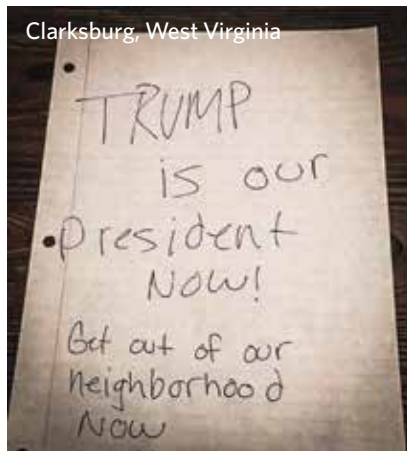 Clarksburg, West Virginia
TRUMP
is our
president
NOW!
Get out of our
neighborhood
NOW